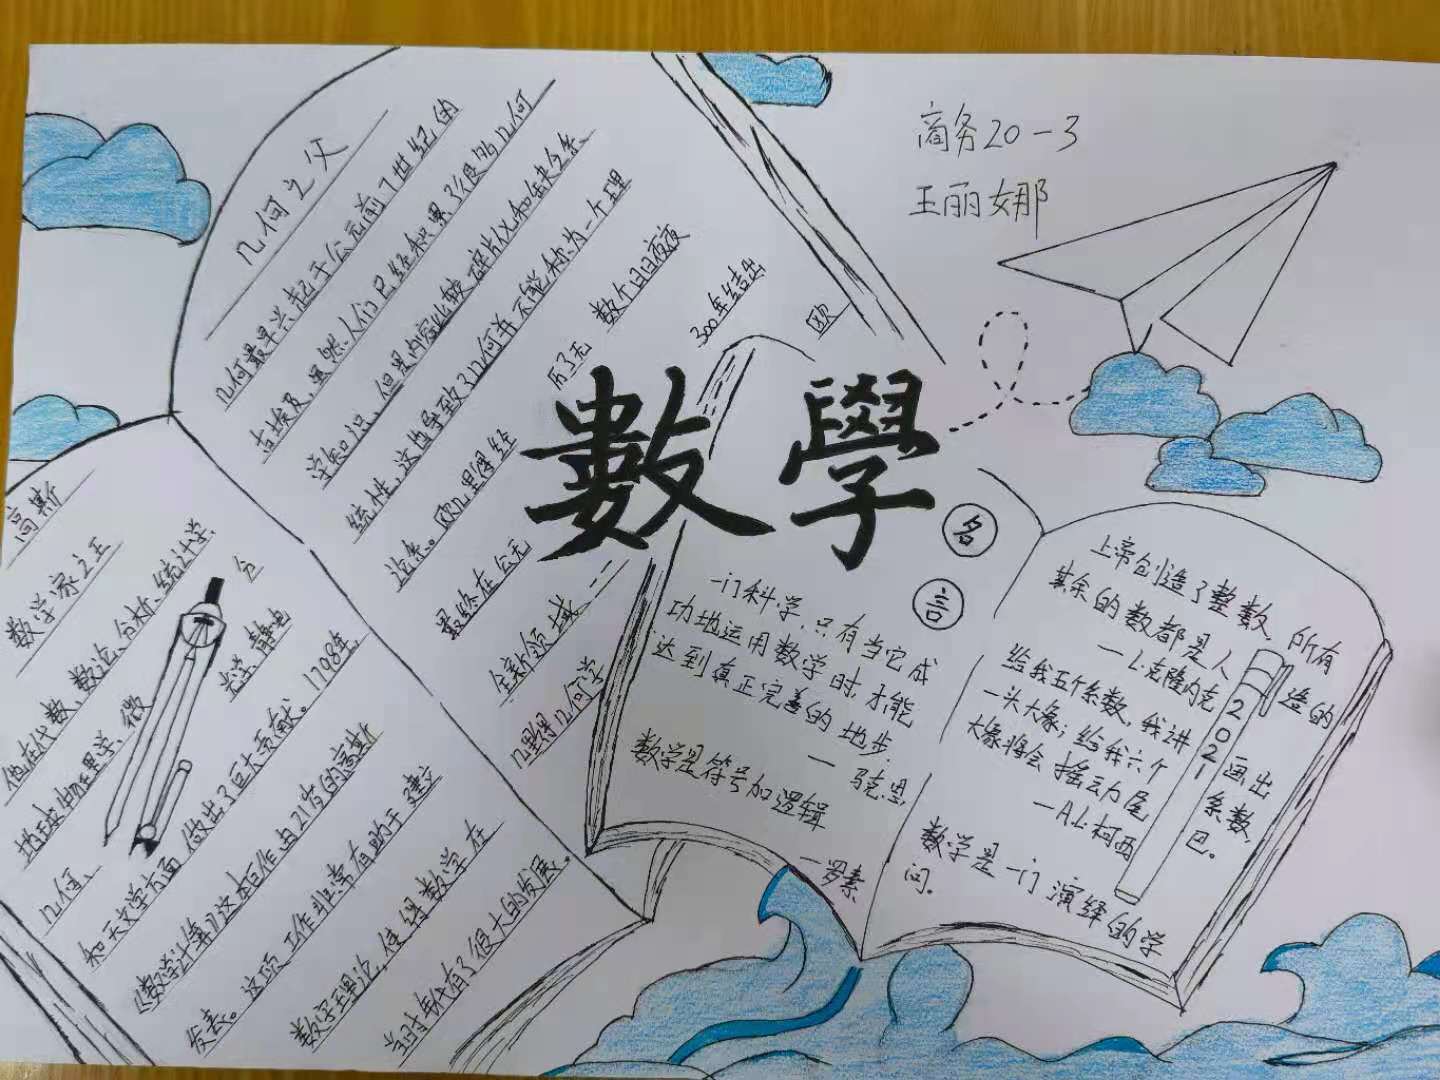 商务20-3
王丽娜
數學
几何之父
几何最早兴起于公元前7世纪的
古埃及,虽然人们已经积累了很多的几何
学知识,但是内容比较碎片化和缺乏系
统性,这也导致了几何并不能称为一个理
论系。欧几里得经历了无数个日日夜夜
最终在公元300年结出
全新领域——欧
几里得几何学
高斯
数学家之王
他在代数、数论、分析、统计学、
地球物理学、微分
几何、光学、静电
和天文学方面做出了巨大贡献。1798年,
《数学计算》这本巨作由21岁的高斯
发表。这项工作非常有助于建立
数字理论,使得数学在
当时年代有了很大的发展。
名言
一门科学,只有当它成
功地运用数学时,才能
达到真正完善的地步。
— 马克思
数学是符号加逻辑
— 罗素
上帝创造了整数,所有
其余的数都是人造的
— L·克隆内克
给我五个系数,我讲画出
一头大象;给我六个系数,
大象将会摇动尾巴。
— A.L·柯西
数学是一门演绎的学
问。
2021